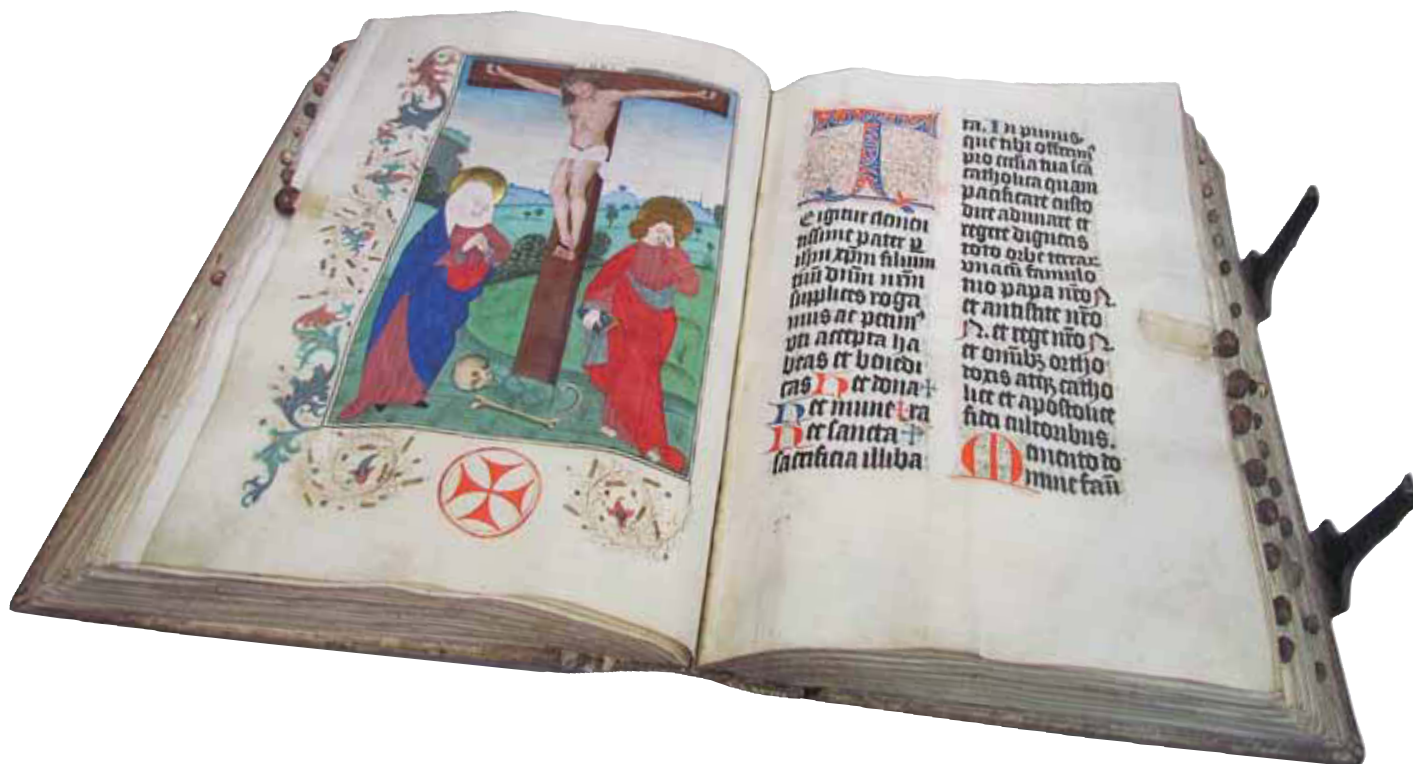 TE igitur clemen
tissime pater ꝑ
ihm̄ xp̄m filium
tuū dn̄m nr̄m
supplices roga
mus ac petimꝰ
vti accepta ha
beas et benedi
cas Hec dona +
Hec munera
Hec sancta +
sacrificia illiba
ta. In primis
que tibi offerimꝰ
pro eccīa tua scā
catholica quam
pacificare custo
dire adunare et
regere digneris
toto orbe terraꝝ
vna cū famulo
tuo papa nr̄o N.
et antistite nr̄o
N. et rege nr̄o N.
et omībꝫ ortho
doxis atqꝫ catho
lice et apostolice
fidei cultoribus.
Memento do
mine